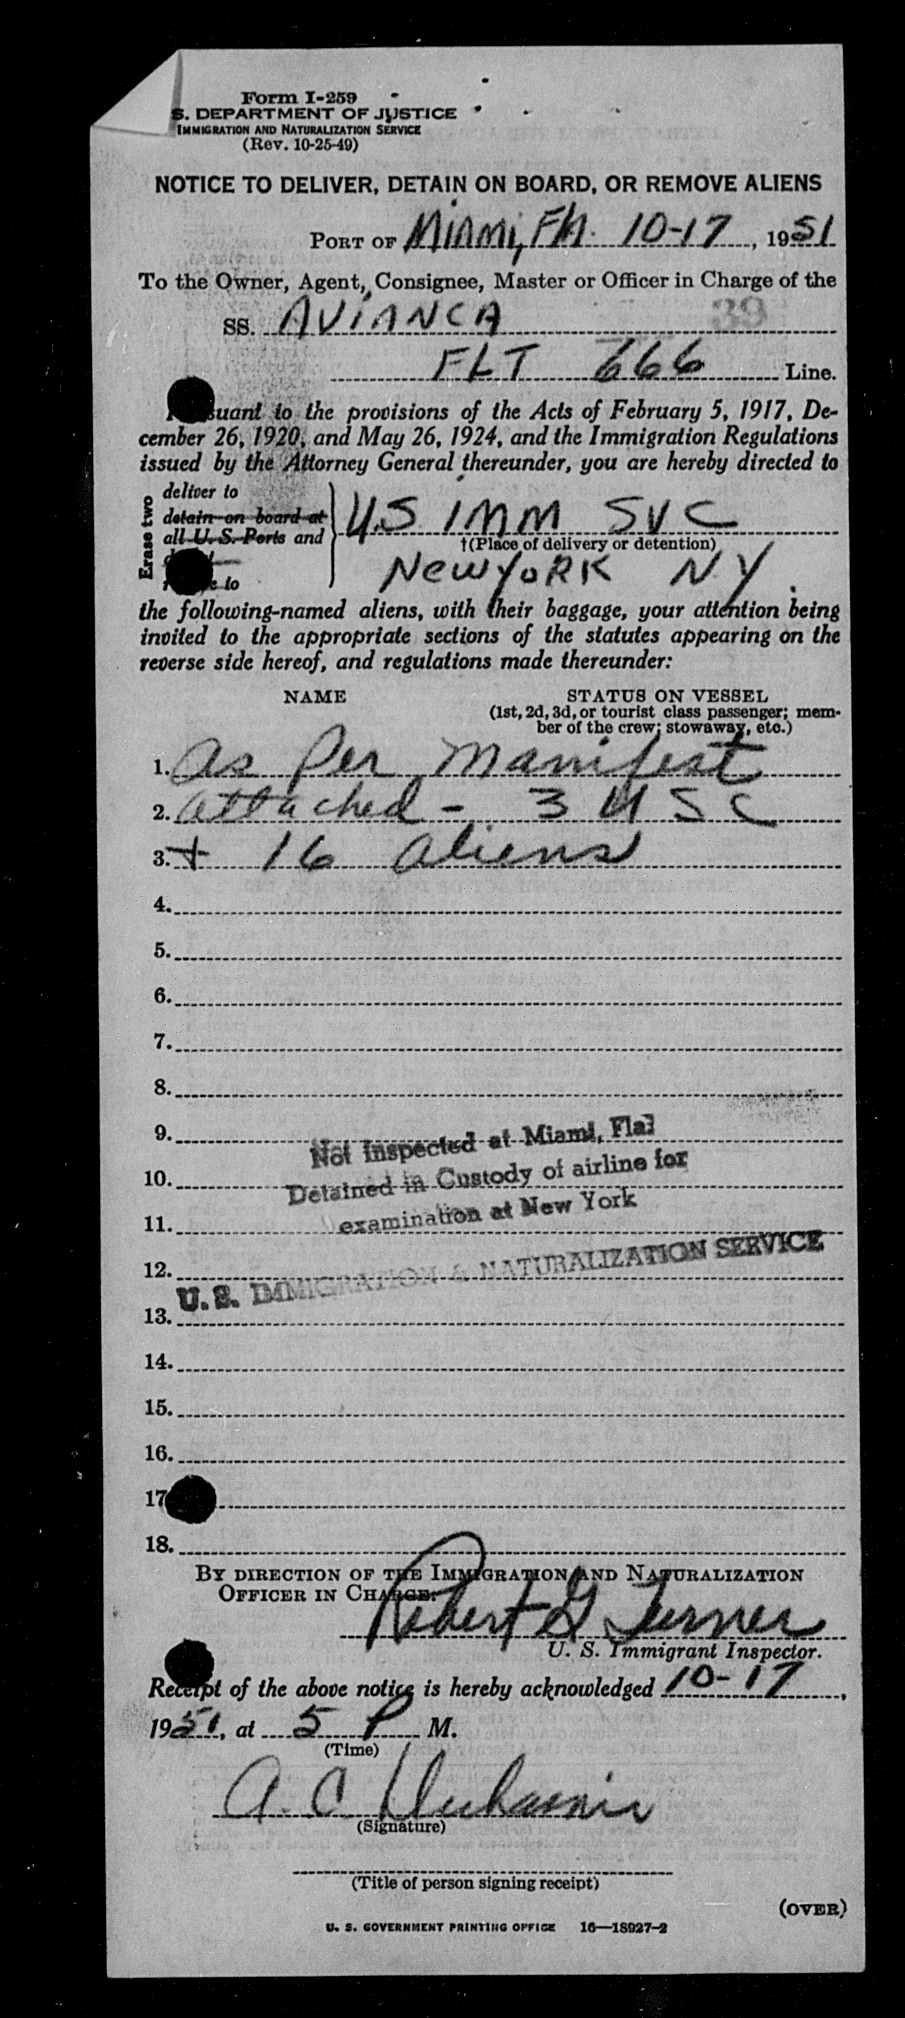 Form I-259
S. DEPARTMENT OF JUSTICE
IMMIGRATION AND NATURALIZATION SERVICE
(Rev. 10-25-49)
NOTICE TO DELIVER, DETAIN ON BOARD, OR REMOVE ALIENS
PORT OF Miami, Fla. 10-17, 1951
To the Owner, Agent, Consignee, Master or Officer in Charge of the
SS. AVIANCA 39
FLT 666 Line.
suant to the provisions of the Acts of February 5, 1917, De-
cember 26, 1920, and May 26, 1924, and the Immigration Regulations
issued by the Attorney General thereunder, you are hereby directed to
Erase two
deliver to
detain on board at
all U. S. Ports and
to
U.S IMM SVC
†(Place of delivery or detention)
New York N.Y.
the following-named aliens, with their baggage, your attention being
invited to the appropriate sections of the statutes appearing on the
reverse side hereof, and regulations made thereunder:
NAME STATUS ON VESSEL
(1st, 2d, 3d, or tourist class passenger; mem-
ber of the crew; stowaway, etc.)
1. as Per Manifest
2. attached - 3 USC
3. + 16 aliens
4.
5.
6.
7.
8.
9.
Not Inspected at Miami, Fla.
10.
Detained in Custody of airline for
11.
examination at New York
12.
U. S. IMMIGRATION & NATURALIZATION SERVICE
13.
14.
15.
16.
17
18.
BY DIRECTION OF THE IMMIGRATION AND NATURALIZATION
OFFICER IN CHARGE:
Robert G Turner
U. S. Immigrant Inspector.
Receipt of the above notice is hereby acknowledged 10-17,
1951, at 5 P M.
(Time)
A. C.
(Signature)
(Title of person signing receipt)
(OVER)
U. S. GOVERNMENT PRINTING OFFICE 16—18927-2